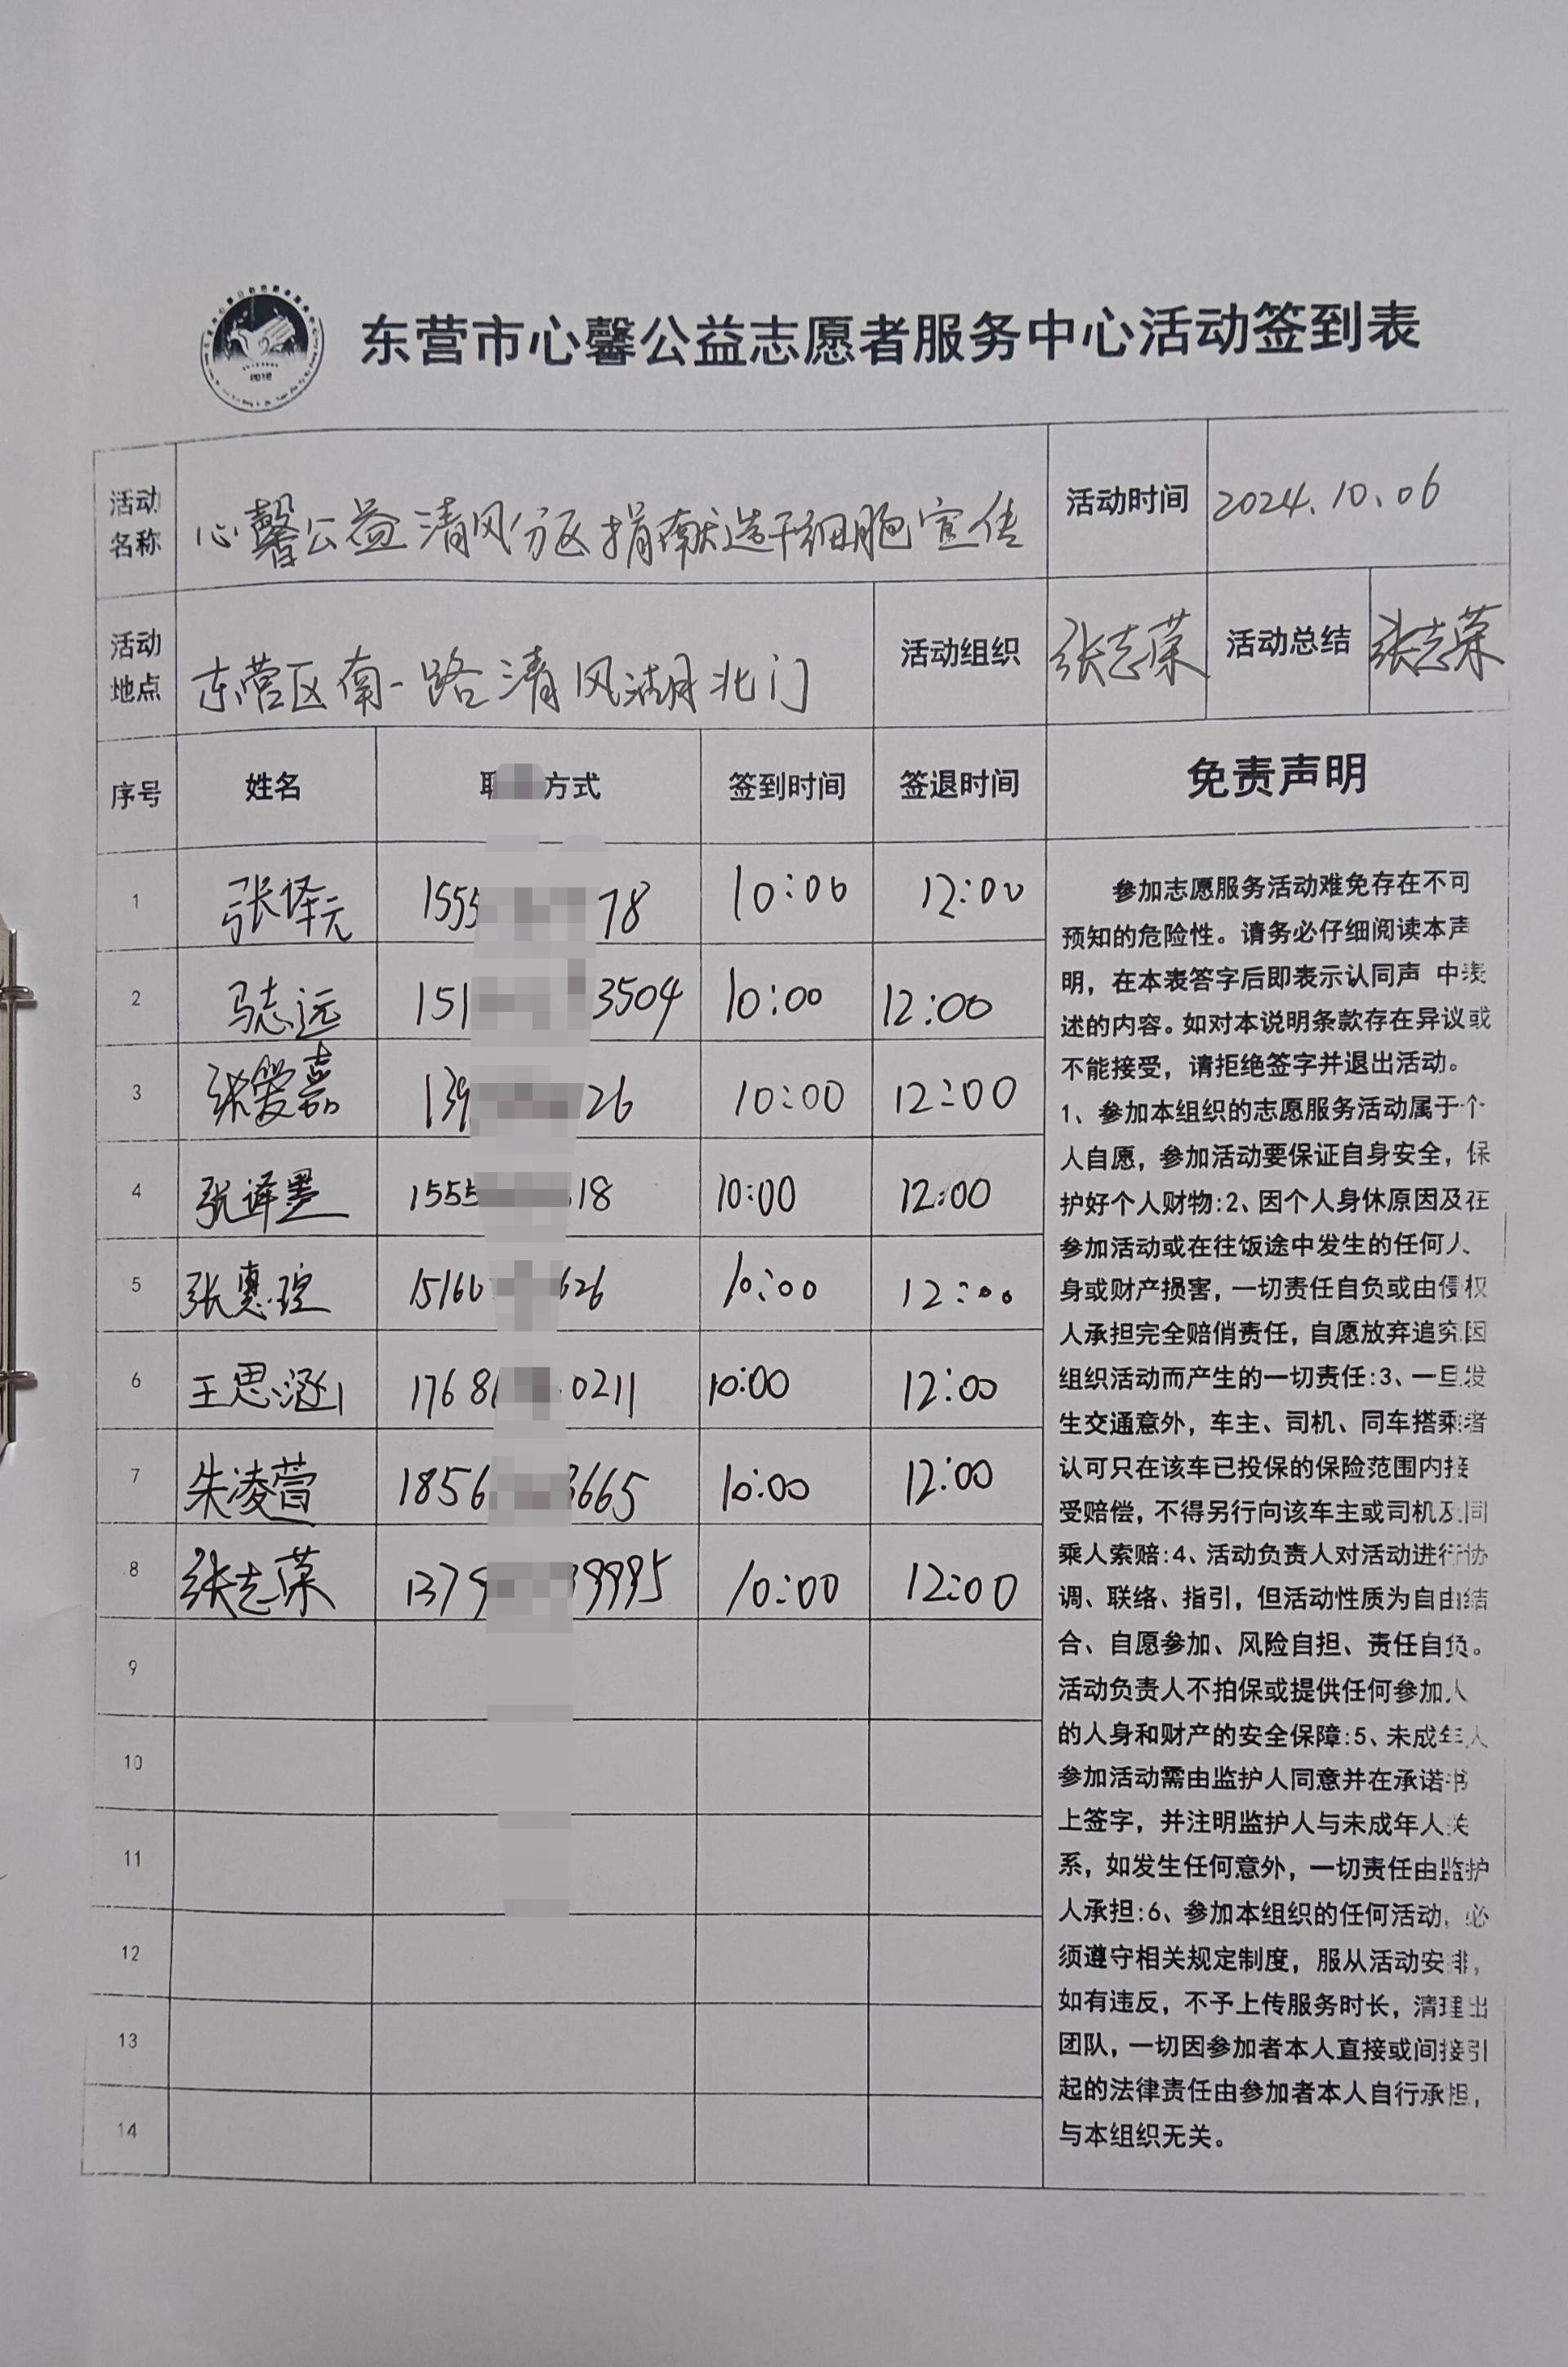 东营市心馨公益志愿者服务中心活动签到表
活动名称 心馨公益清风分区捐献造干细胞宣传 活动时间 2024.10.06
活动地点 东营区南一路清风湖北门 活动组织 张志荣 活动总结 张志荣
序号 姓名 方式 签到时间 签退时间 免责声明
1 张译元 1555 78 10:00 12:00
2 马志远 151 3504 10:00 12:00
3 张爱嘉 139 26 10:00 12:00
4 张译墨 1555 18 10:00 12:00
5 张惠瑄 15160 626 10:00 12:00
6 王思涵 1768 0211 10:00 12:00
7 朱凌萱 1856 3665 10:00 12:00
8 张志荣 1379 9995 10:00 12:00
9
10
11
12
13
14
参加志愿服务活动难免存在不可
预知的危险性。请务必仔细阅读本声
明，在本表答字后即表示认同声 中表
述的内容。如对本说明条款存在异议或
不能接受，请拒绝签字并退出活动。
1、参加本组织的志愿服务活动属于个
人自愿，参加活动要保证自身安全，保
护好个人财物:2、因个人身休原因及在
参加活动或在往饭途中发生的任何人
身或财产损害，一切责任自负或由侵权
人承担完全赔俏责任，自愿放弃追究因
组织活动而产生的一切责任:3、一旦发
生交通意外，车主、司机、同车搭乘者
认可只在该车已投保的保险范围内接
受赔偿，不得另行向该车主或司机及同
乘人索赔:4、活动负责人对活动进行协
调、联络、指引，但活动性质为自由结
合、自愿参加、风险自担、责任自负。
活动负责人不拍保或提供任何参加人
的人身和财产的安全保障:5、未成年人
参加活动需由监护人同意并在承诺书
上签字，并注明监护人与未成年人关
系，如发生任何意外，一切责任由监护
人承担:6、参加本组织的任何活动，必
须遵守相关规定制度，服从活动安排，
如有违反，不予上传服务时长，清理出
团队，一切因参加者本人直接或间接引
起的法律责任由参加者本人自行承担，
与本组织无关。